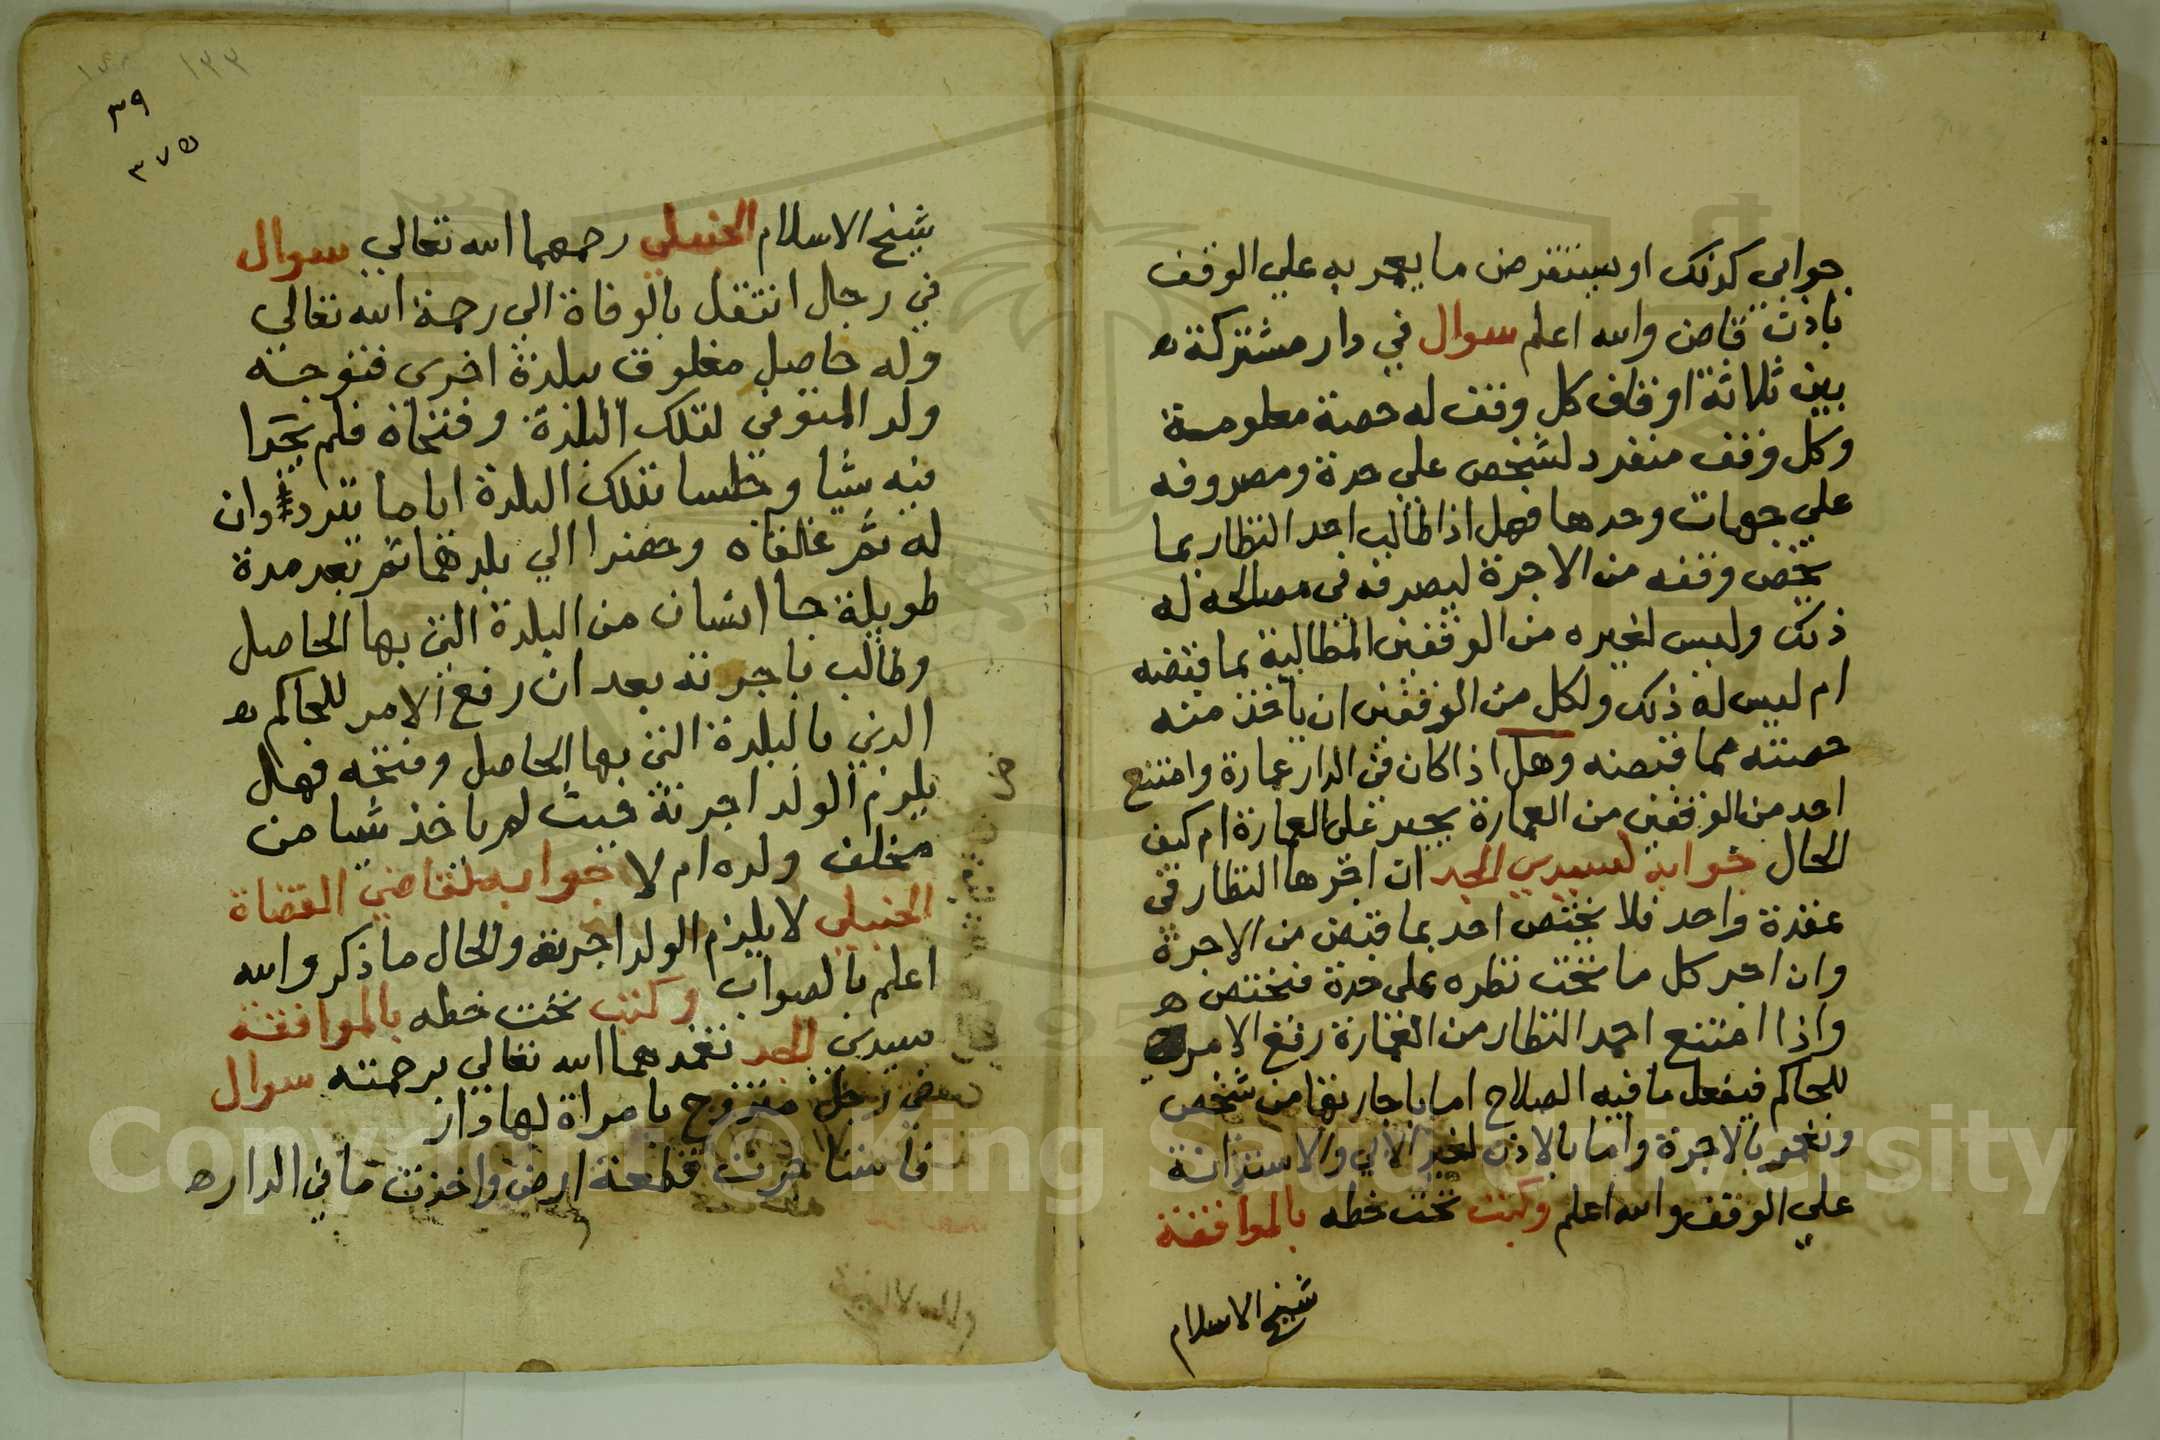 جوابي كذلك او يستقرض ما يعمر به علي الوقف
باذن قاض والله اعلم سوال في دار مشتركة
بين ثلاثة اوقاف كل وقف له حصة معلومة
وكل وقف منفرد لشخص علي حدة ومصروفه
علي جهات وحدها فهل اذا طالب احد النظار بما
يخص وقفه من الاجرة ليصرفه في مصالحه له
ذلك وليس لغيره من الوقفين المطالبة بما قبضه
ام ليس له ذلك ولكل من الوقفين ان ياخذ منه
حصته مما قبضه وهل اذا كان في الدار عمارة وامتنع
احد من الوقفين من العمارة يجبر علي العمارة ام كيف
الحال جوابه لسيدي الجد ان اجرها النظار في
عقدة واحد فلا يختص احد بما قبض من الاجرة
وان اجر كل ما تحت نظره علي حدة فيختص
واذا امتنع احد النظار من العمارة رفع الامر
للحاكم فيفعل ما فيه الصلاح اما باجارتها من شخص
وتعمر بالاجرة واما بالاذن لغير الابي والاستدانة
علي الوقف والله اعلم وكتب تحت خطه بالموافقة
شيخ الاسلام
١٣٣
٣٩
٣٧٥
شيخ الاسلام الحنبلي رحمهما الله تعالي سوال
في رجل انتقل بالوفاة الي رحمة الله تعالي
وله حاصل مغلوق ببلدة اخرى فتوجه
ولد المتوفي لتلك البلدة وفتحاه فلم يجدا
فيه شيا وجلسا بتلك البلدة اياما
له ثم غلقاه وحضرا الي بلدهما ثم بعد مدة
طويلة جا انسان من البلدة التي بها الحاصل
وطالب باجرته بعد ان رفع الامر للحاكم
الذي بالبلدة التي بها الحاصل وفتحه فهل
يلزم الولد اجرته حيث لم ياخذ شيا من
مخلف ولده ام لا جوابه لقاضي القضاة
الحنبلي لا يلزم الولد اجرته والحال ما ذكر والله
اعلم بالصواب وكتب تحت خطه بالموافقة
سيدي الجد تغمدهما الله تعالي برحمته سوال
في رجل متزوج بامراة لها دار
قطعة ارض واخذت ما في الدار
Copyright © King Saud University